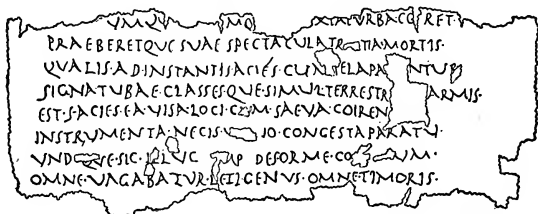 VMQV MO XIATVRBACO RET·
PRAEBERETQVE SVAE SPECTACVLATR TIAMORTIS·
QVALIS·AD·INSTANTIS·ACIES·CVM ELAPA NTVR
SIGNATVBAE·CLASSESQVE·SIMVL·TERRESTR ARMIS·
EST·FACIES·EA·VISA·LOCI·CVM·SAEVA·COIREN
INSTRVMENTA·NECIS·V IO·CONGESTAPARATV·
VND QVE·SIC·ILLVC MP DEFORME·CO VM·
OMNE·VAGABATVR·LETI·GENVS·OMNETIMORIS·